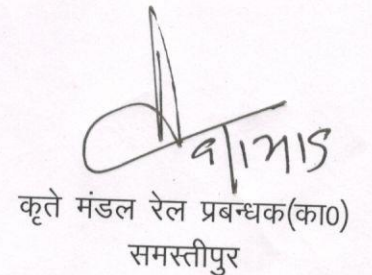 कृते मंडल रेल प्रबन्धक(का0)
समस्तीपुर